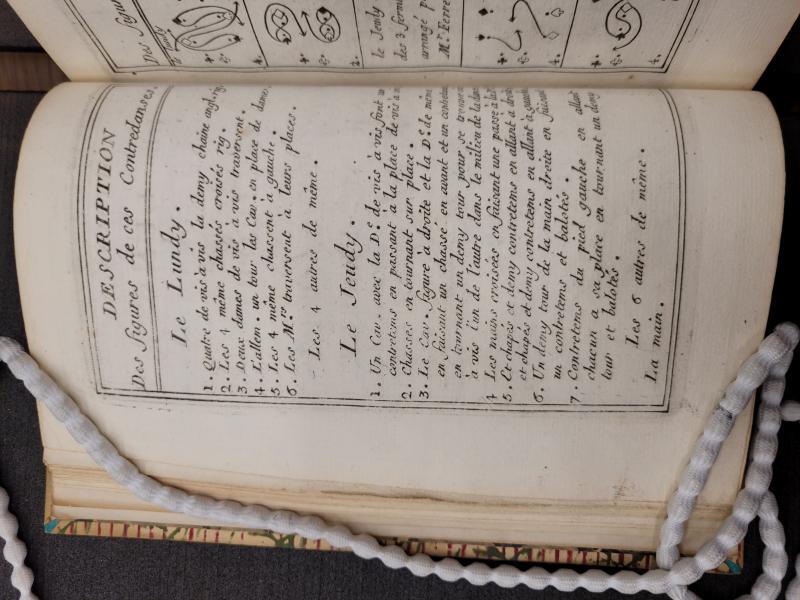 DESCRIPTION
Des figures de ces Contredanses.
Le Lundy.
1. Quatre de vis à vis la demy chaine angl. rig.
2. Les 4 même chassés croisés rig.
3. Deux dames de vis à vis traversent.
4. L'allem. un tour les Cav. en place de dames
5. Les 4 même chassent à gauche.
6. Les M.rs traversent à leurs places.
Les 4 autres de même.
Le Jeudy.
1. Un Cav. avec la D.e de vis à vis font un
contretems en passant à la place de vis à
2. Chassés en tournant sur place.
3. Le Cav. figure à droite et la D.e de même
en faisant un chassé en avant et un
en tournant un demy tour pour se trouver
à vis l'un de l'autre dans le milieu de la
4 Les mains croisées en faisant une passe à la
5. Et chapés et demy contretems en allant à droite
et chapés et demy contretems en allant à gauche
6. Un demy tour de la main droite en faisant
un contretems et balotés.
7. Contretems du pied gauche en allant
chacun a sa place en tournant un demy
tour et balotés.
Les 6 autres de même.
La main.
Des figu
le Jeudy
des 3
arrangé p
M.r